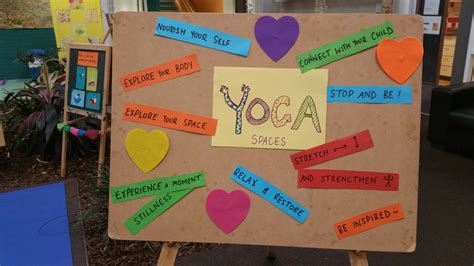 NOURISH YOUR SELF
CONNECT WITH YOUR CHILD
EXPLORE YOUR BODY
STOP AND BE!
YOGA
SPACES
EXPLORE YOUR SPACE
STRETCH
AND STRENGTHEN
EXPERIENCE A MOMENT
STILLNESS
RELAX & RESTORE
BE INSPIRED